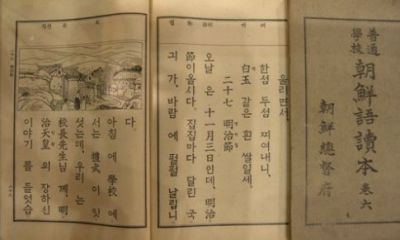 普通學校
朝鮮語讀本 卷六
朝鮮總督府
울리면서、
한섬 두섬 찌여내니、
白玉 같은 흰 쌀일세。
二十七 明治節
오날 은 十一月三日인데、明治
節이올시다。집집마다 달린 국
긔 가、바람 에 펄펄 날립니
다。
아침 에 學校 에
서는 禮式 이 잇
섯는데、우리 는
校長先生님 께 明
治天皇 의 장하신
이야기 를 들엇습